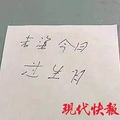 老婆今日
过生日
现代快报